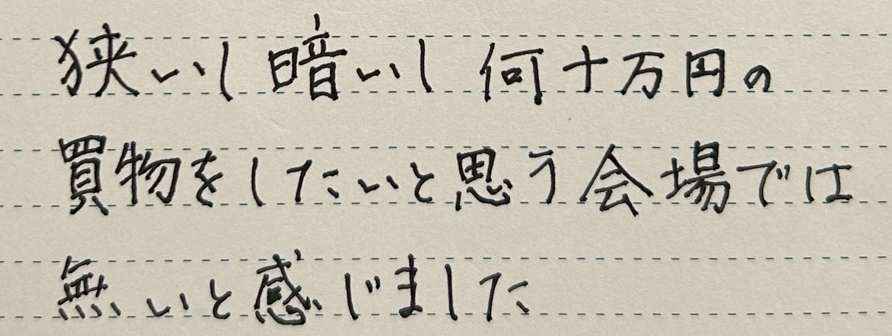 狭いし暗いし 何十万円の
買物をしたいと思う会場では
無いと感じました